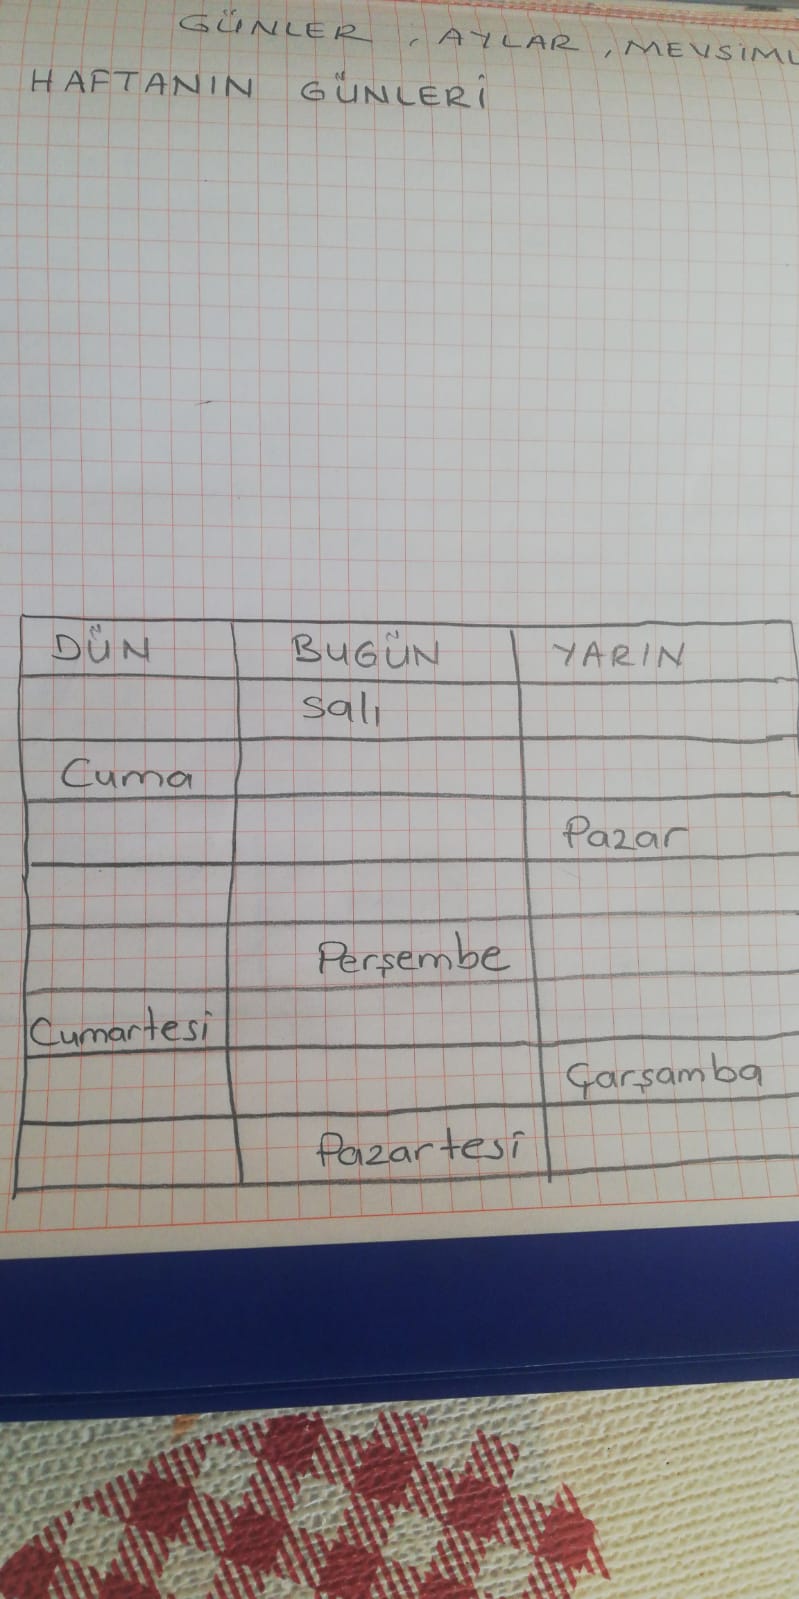 GÜNLER, AYLAR, MEVSİML
HAFTANIN GÜNLERİ
DÜN BUGÜN YARIN
Salı
Cuma
Pazar
Perşembe
Cumartesi
Çarşamba
Pazartesi